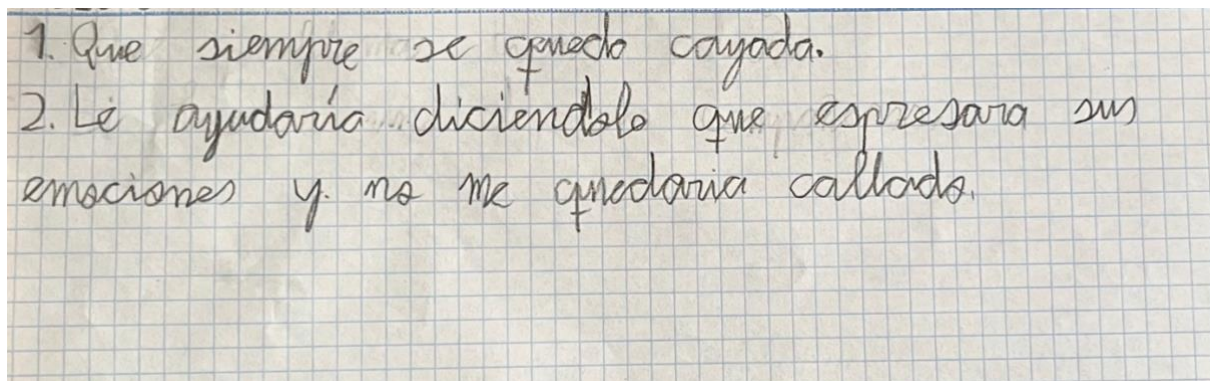 1. Que siempre se quedo cayada.
2. Le ayudaría diciendolo que espresara sus
emociones y. no me quedaria callado.